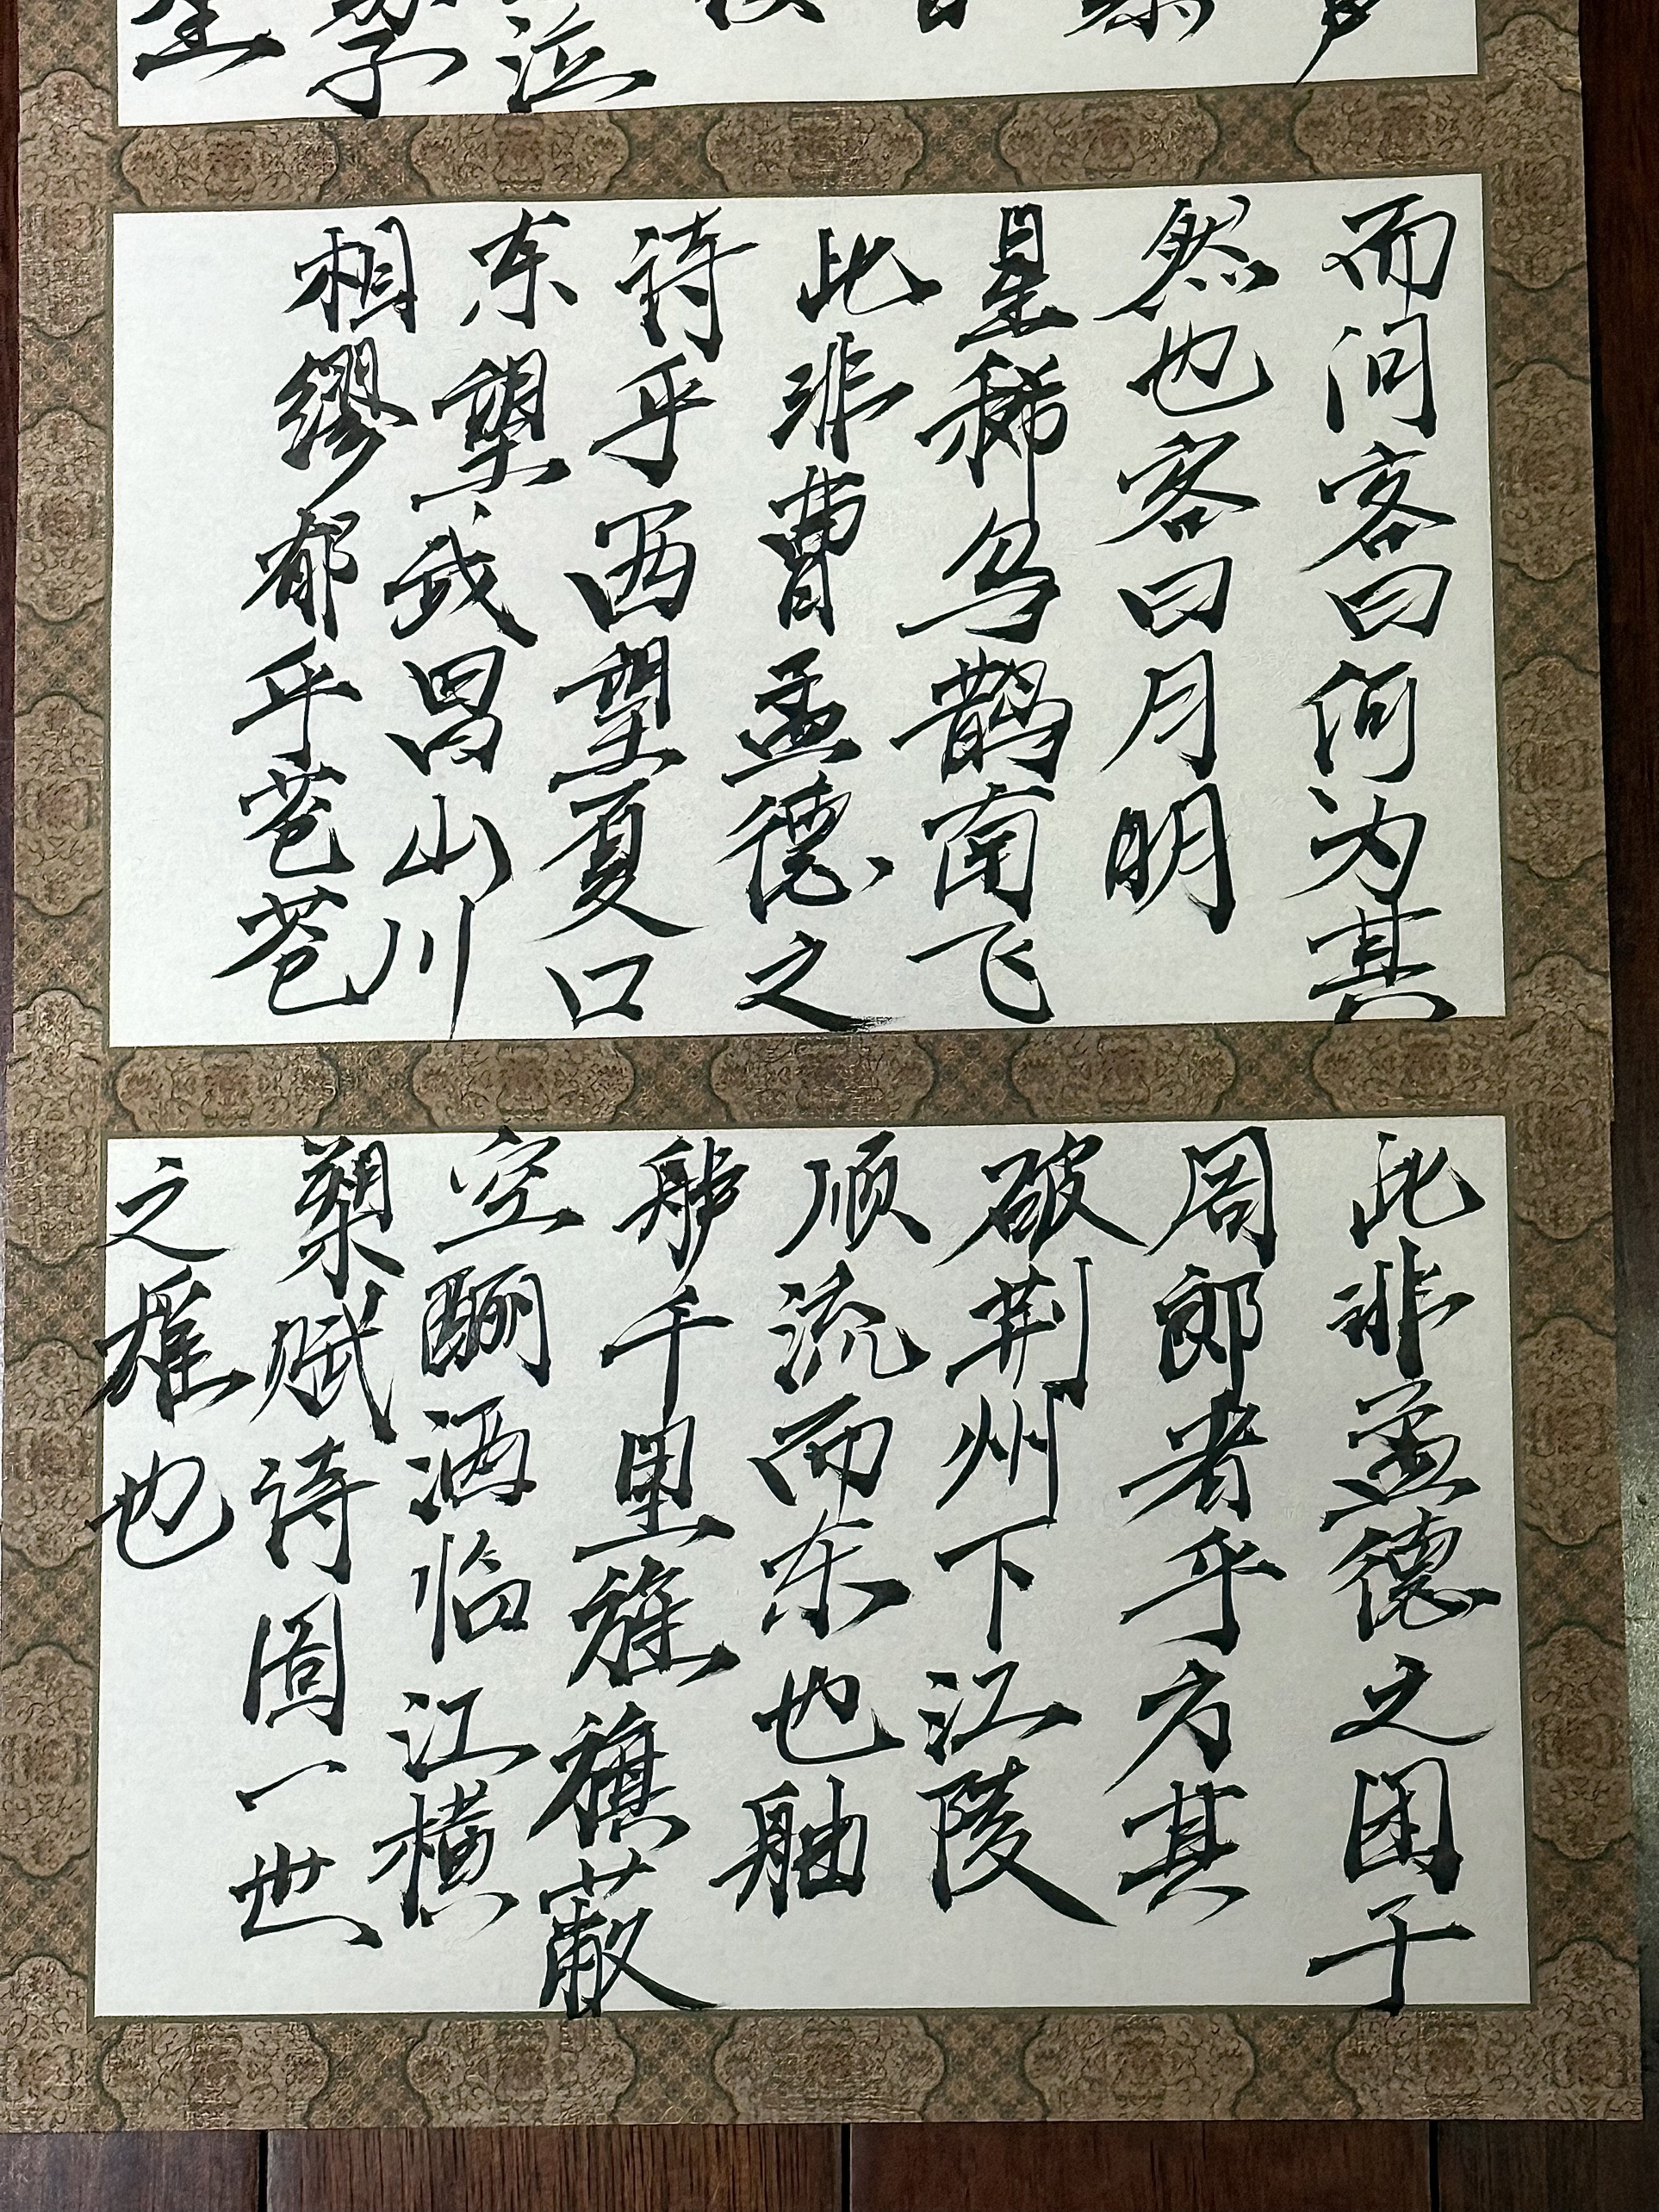 泣
而问客曰何为其
然也客曰月明
星稀乌鹊南飞
此非曹孟德之
诗乎西望夏口
东望武昌山川
相缪郁乎苍苍
此非孟德之困于
周郎者乎方其
破荆州下江陵
顺流而东也舳
舻千里旌旗蔽
空酾酒临江横
槊赋诗固一世
之雄也